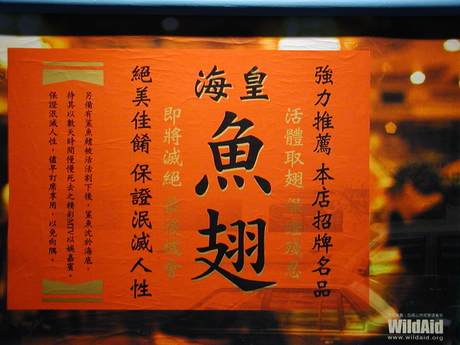 強力推薦 本店招牌名品
活體取翅 保證殘忍
海皇
魚翅
即將滅絕 最後機會
絕美佳餚 保證泯滅人性
另備有鯊魚鰭被活活割下後，鯊魚沈於海底，
待其以數天時間慢慢死去之精彩MTV以娛嘉賓，
保證泯滅人性，儘早訂席享用，以免向隅。
WildAid
www.wildaid.org